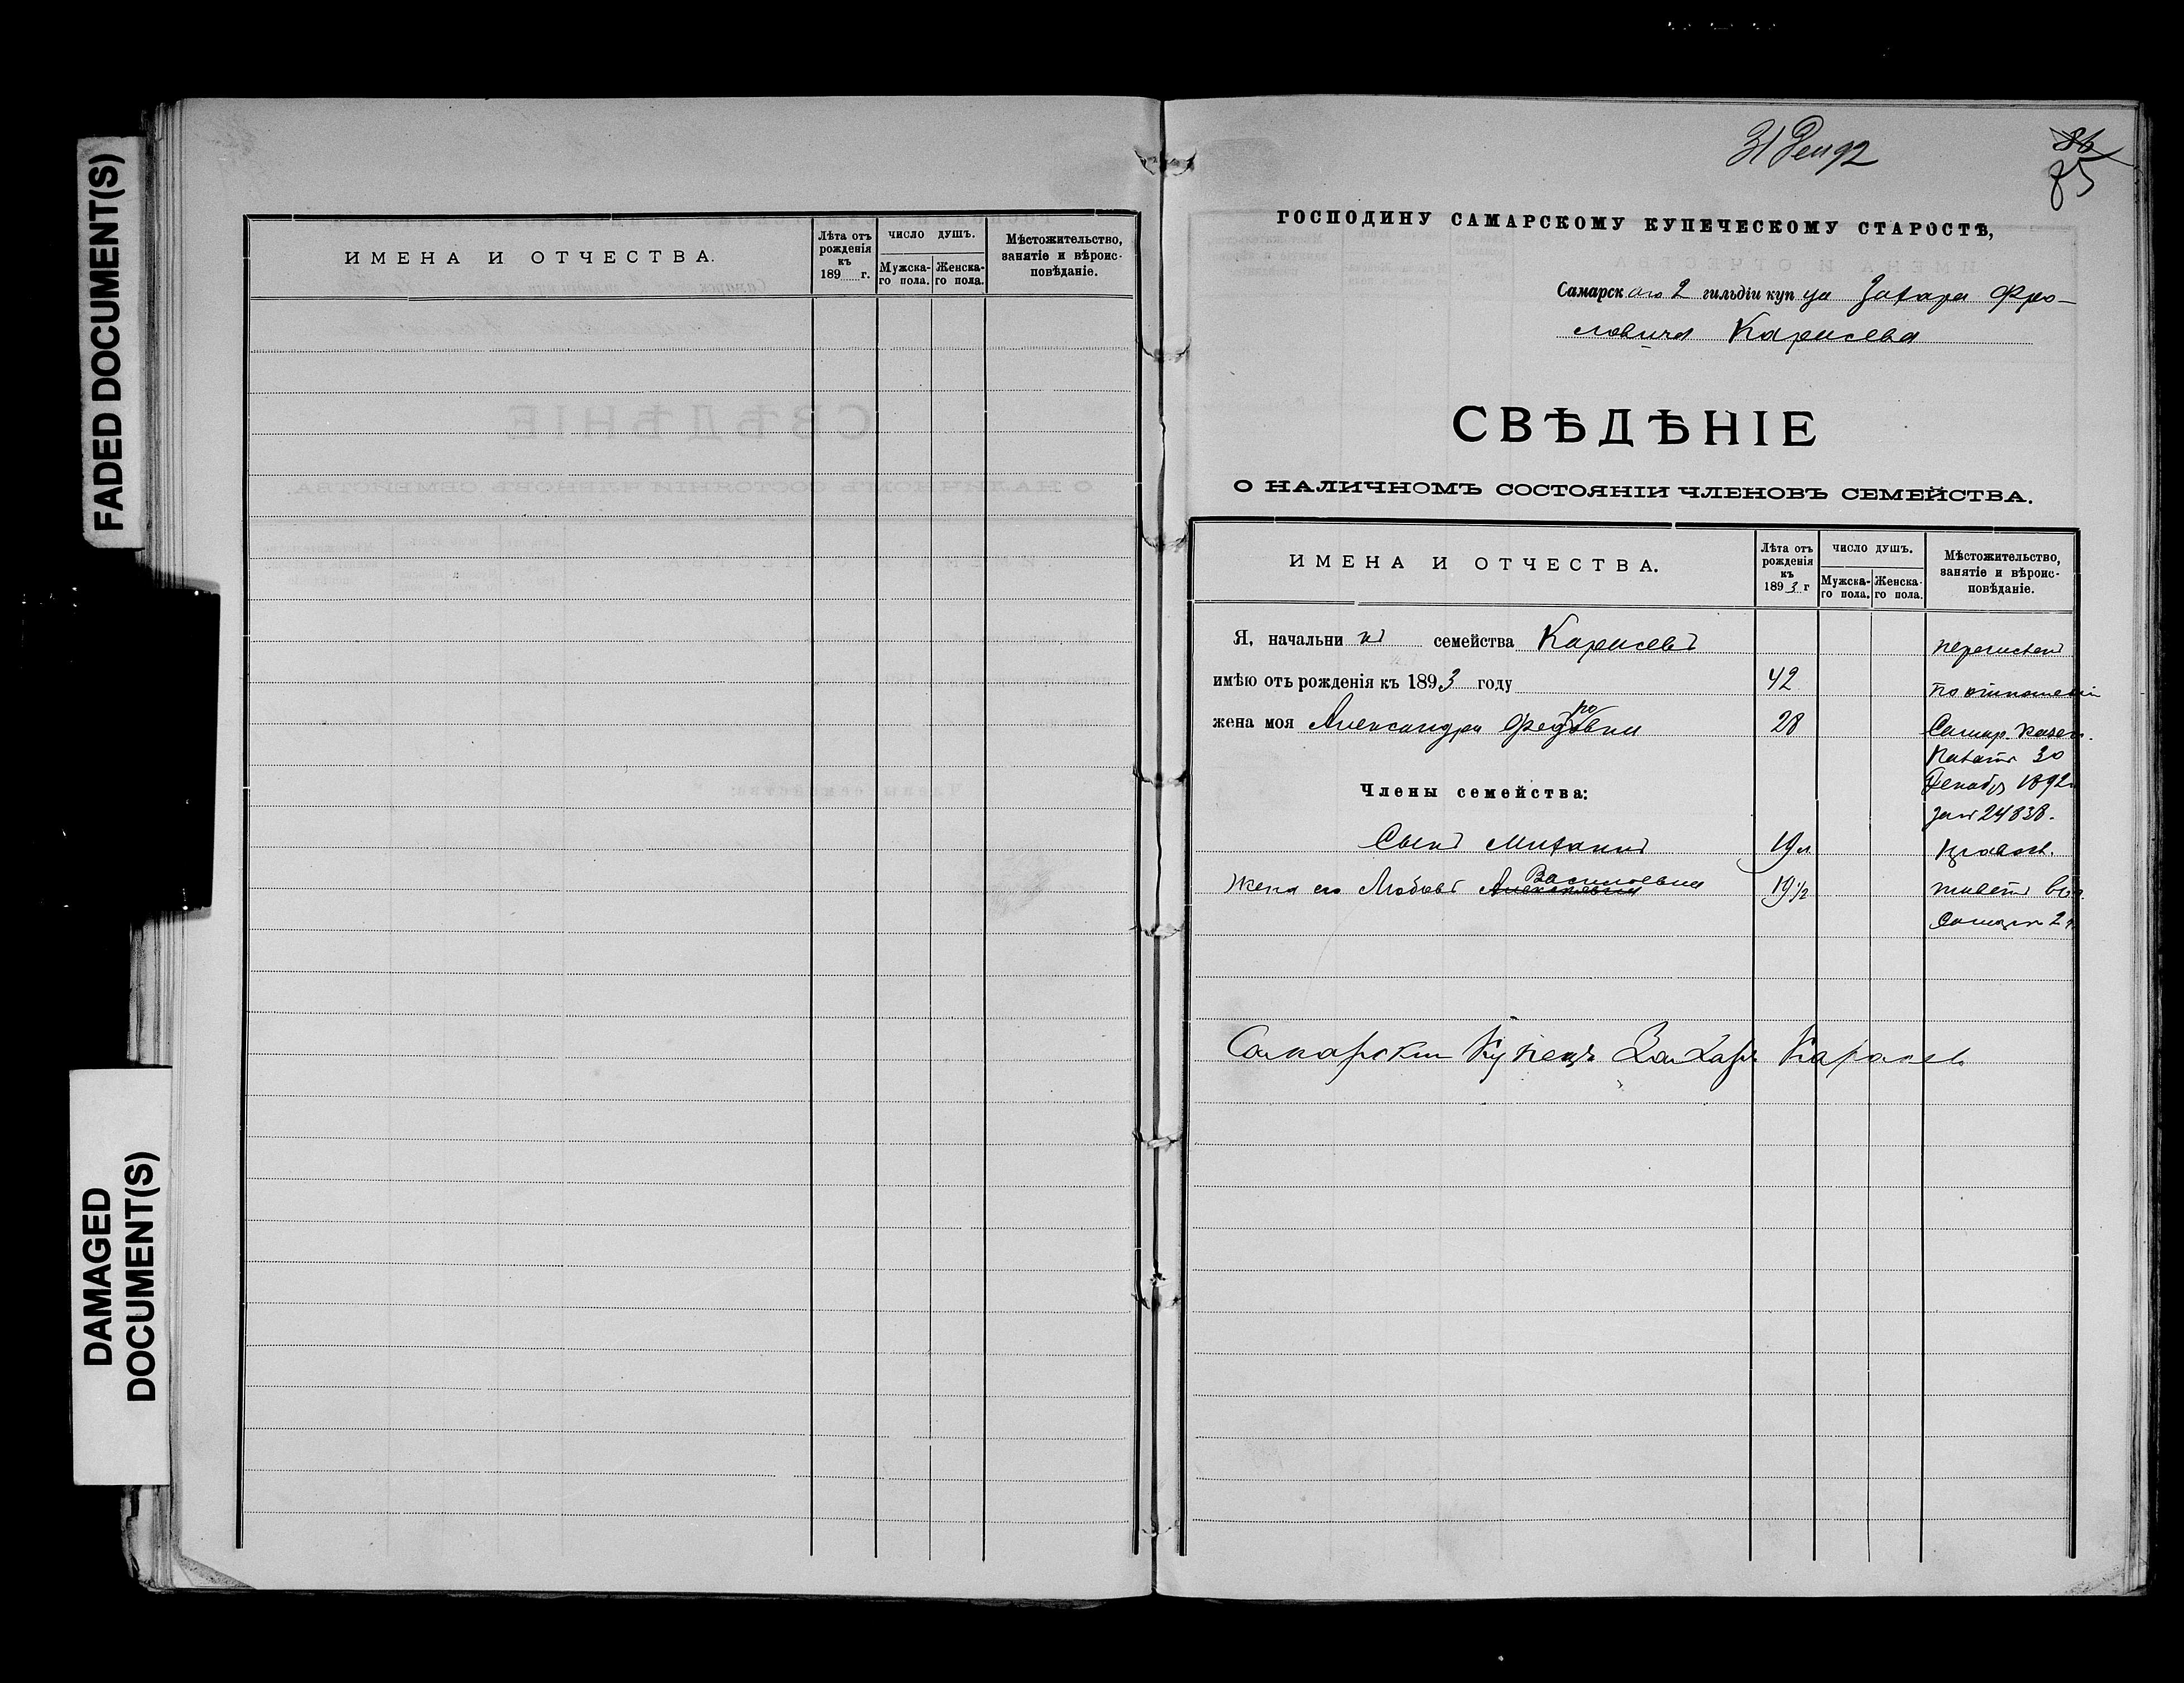 FADED DOCUMENT(S)
DAMAGED
DOCUMENT(S)
ИМЕНА И ОТЧЕСТВА.
Лѣта отъ
рожденія
къ
189 г.
ЧИСЛО ДУШЪ.
Мужска-
го пола.
Женска-
го пола.
Мѣстожительство,
занятіе и вѣроис-
повѣданіе.
31 Дек 92
86
85
ГОСПОДИНУ САМАРСКОМУ КУПЕЧЕСКОМУ СТАРОСТѢ,
Самарскаго 2 гильдіи купца Захара Фро-
ловича Карасева
СВѢДѢНІЕ
О НАЛИЧНОМЪ СОСТОЯНІИ ЧЛЕНОВЪ СЕМЕЙСТВА.
ИМЕНА И ОТЧЕСТВА.
Лѣта отъ
рожденія
къ
1893 г
ЧИСЛО ДУШЪ.
Мужска-
го пола.
Женска-
го пола.
Мѣстожительство,
занятіе и вѣроис-
повѣданіе.
Я, начальникъ семейства Карасевъ
перечисленъ
имѣю отъ рожденія къ 1893 году 42
по отношенію
жена моя Александра 28
Самар. Казен.
Палаты 30
Декабр 1892
за № 24838.
Члены семейства:
Сынъ Михаилъ 19 л
правосл.
Жена его Любовь Васильевна 19 1/2
живетъ въ
Самарѣ 2
Самарскии Купецъ Захаръ Карасевъ